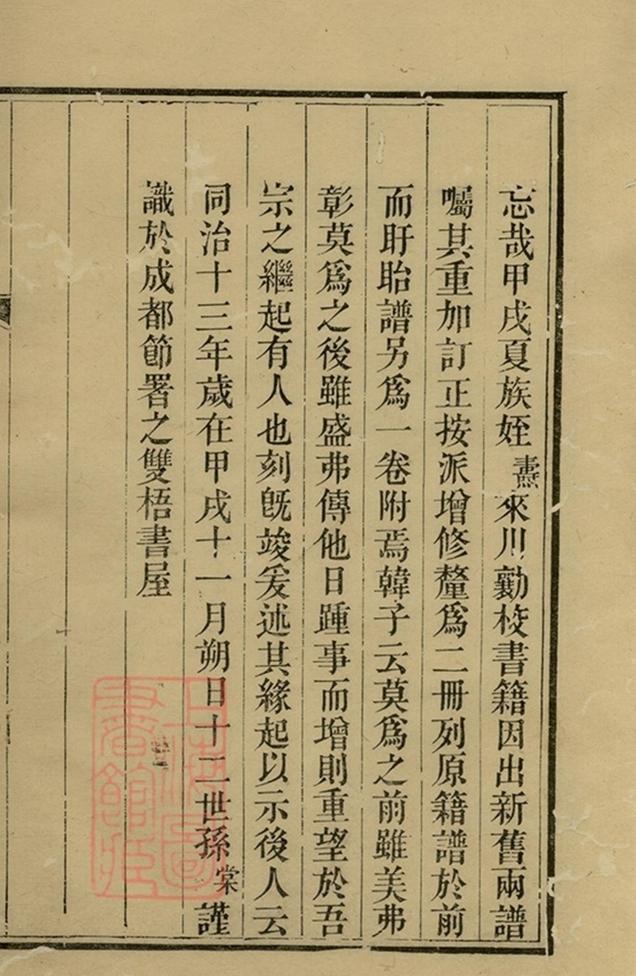 忘哉甲戌夏族姪燾來川勷校書籍因出新舊兩譜
囑其重加訂正按派增修釐爲二冊列原籍譜於前
而盱眙譜另爲一卷附焉韓子云莫爲之前雖美弗
彰莫爲之後雖盛弗傳他日踵事而增則重望於吾
宗之繼起有人也刻旣竣爰述其緣起以示後人云
同治十三年歲在甲戌十一月朔日十二世孫棠謹
識於成都節署之雙梧書屋